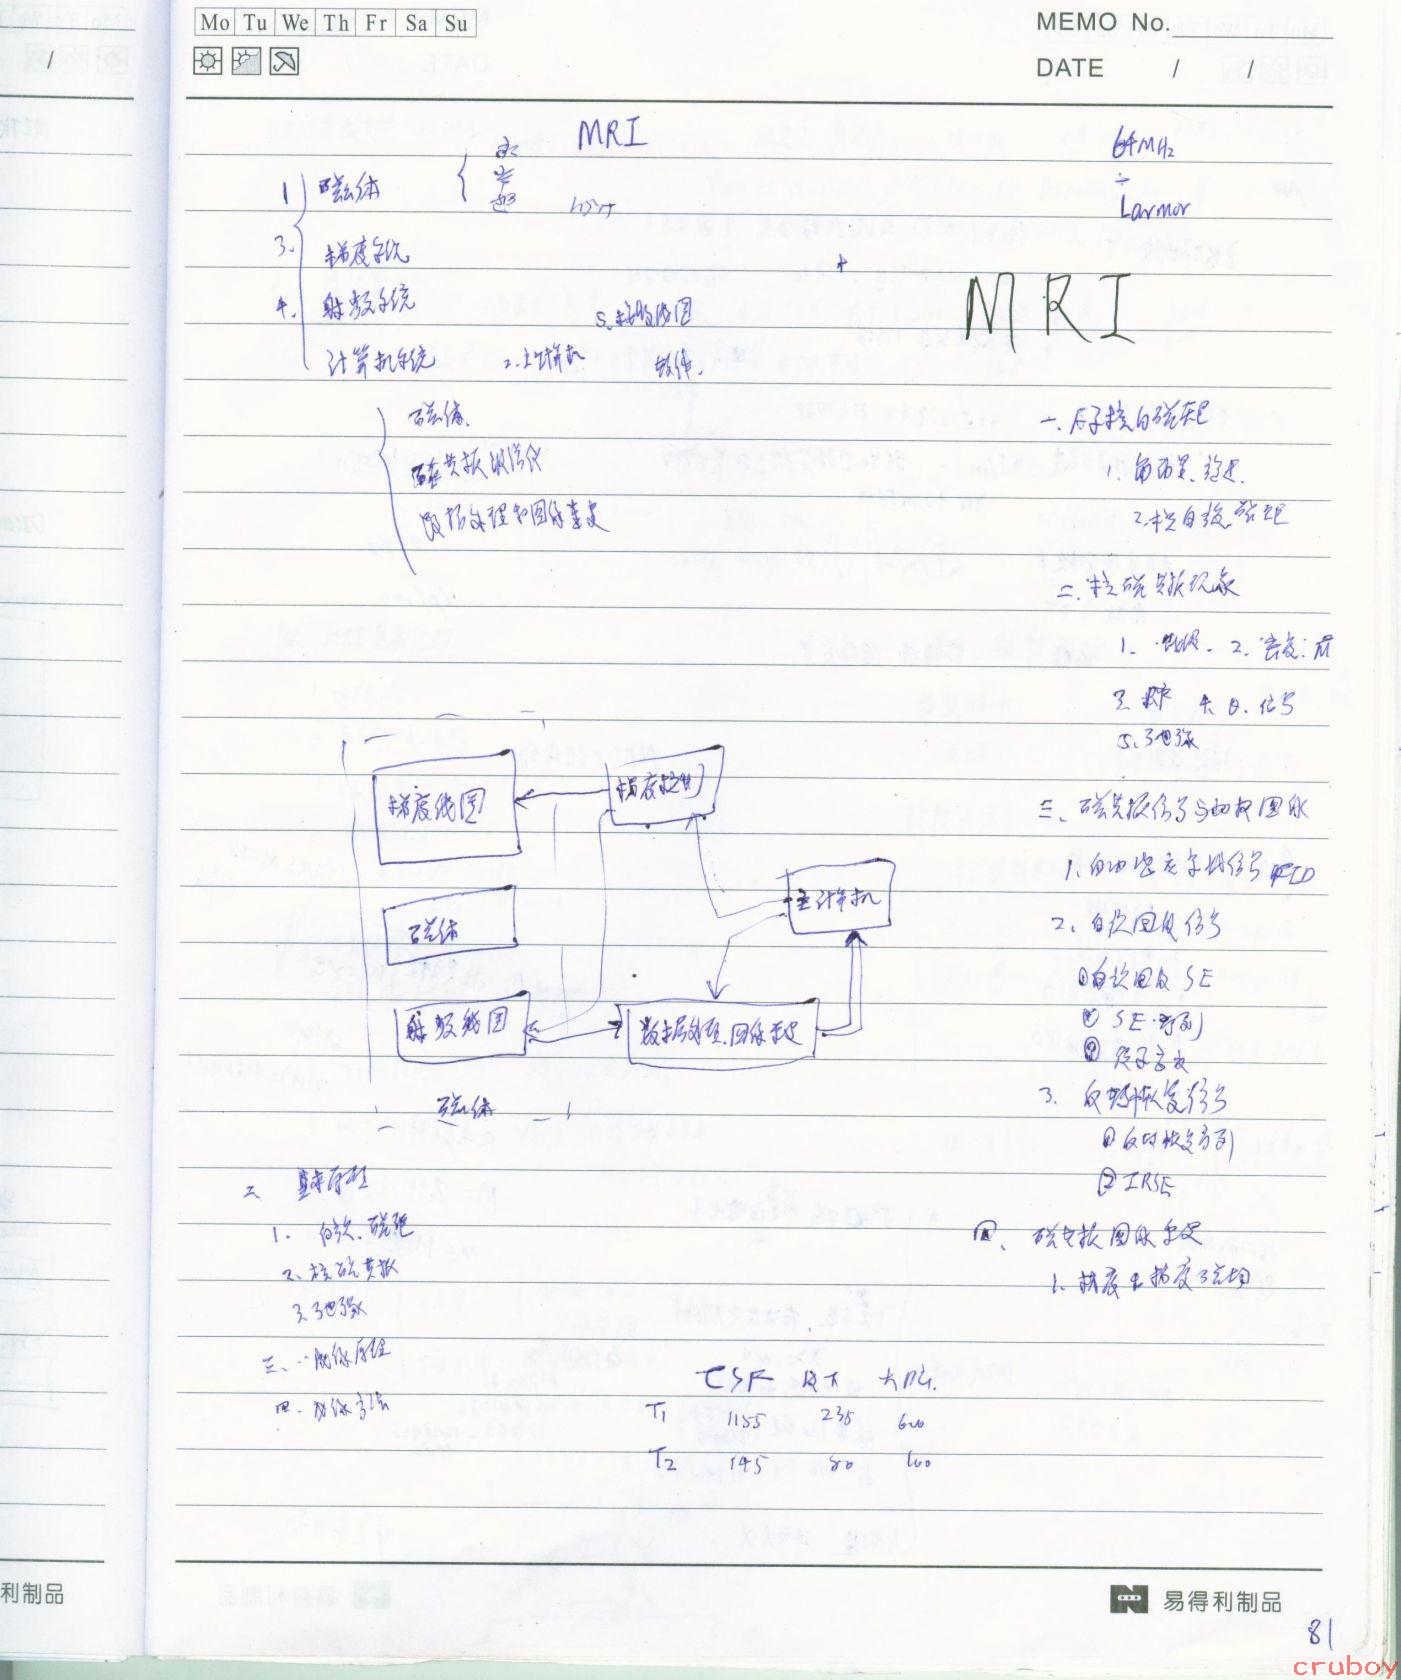 Mo Tu We Th Fr Sa Su
MEMO No.
DATE / /
MRI
64MHz
Larmor
1 磁体
永
常
超
3. 梯度系统
4. 射频系统
5. 接收线圈
计算机系统
2. 主计算机
软件
MRI
磁体
磁共振波谱仪
数据处理和图像重建
一、原子核的磁矩
1.
2. 核自旋 磁矩
二、核磁共振现象
1. 2.
3. 4. 信号
5. 弛豫
梯度线圈
梯度控制
主计算机
磁体
射频线圈
数据处理.图像重建
磁体
三、磁共振信号与加权图像
1. 自由感应衰减信号 FID
2. 自旋回波信号
①自旋回波 SE
② SE 序列
③ 质子密度
3. 反转恢复信号
①反转恢复序列
② IRSE
四、磁共振图像重建
1. 梯度与梯度磁场
二 基本原理
1. 自旋.磁矩
2. 核磁共振
3. 弛豫
三、成像原理
四、成像方法
CSF 皮下 大脑
T1 1155 235 600
T2 145 80 100
利制品
易得利制品
81
cruboy